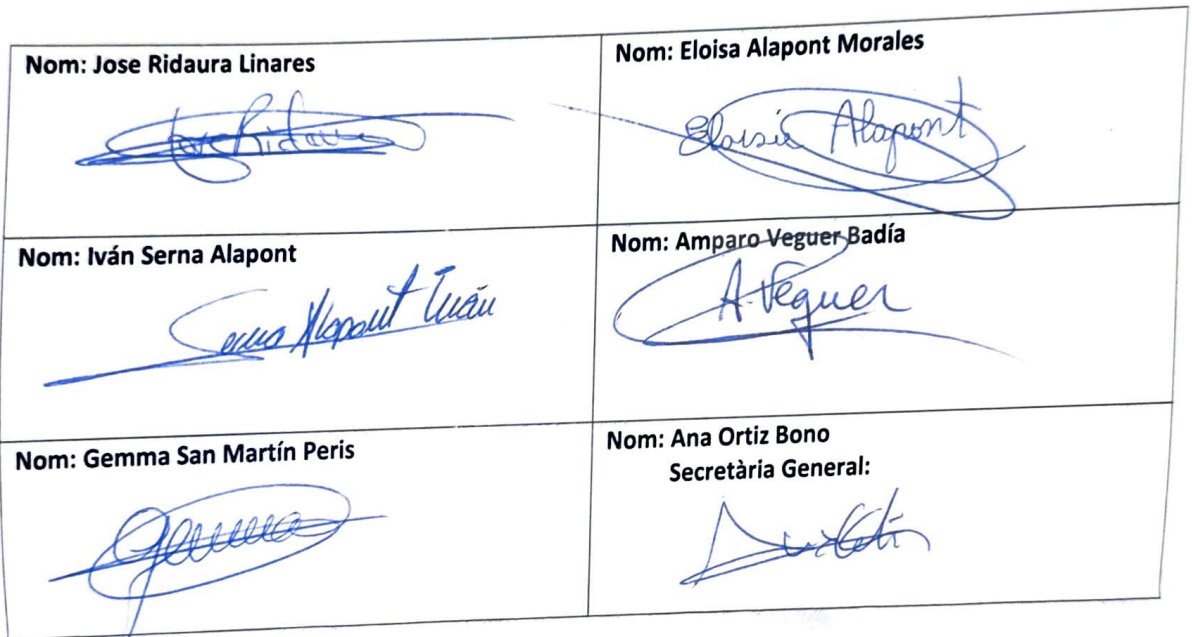 Nom: Jose Ridaura Linares
Nom: Eloisa Alapont Morales
Jose Ridaura
Eloisa Alapont
Nom: Iván Serna Alapont
Nom: Amparo Veguer Badía
Serna Alapont Iván
A. Veguer
Nom: Gemma San Martín Peris
Nom: Ana Ortiz Bono
Secretària General:
Gemma